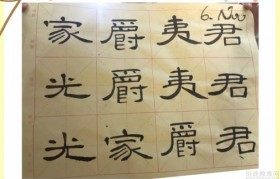 君君君
夷夷爵
爵爵家
家光光